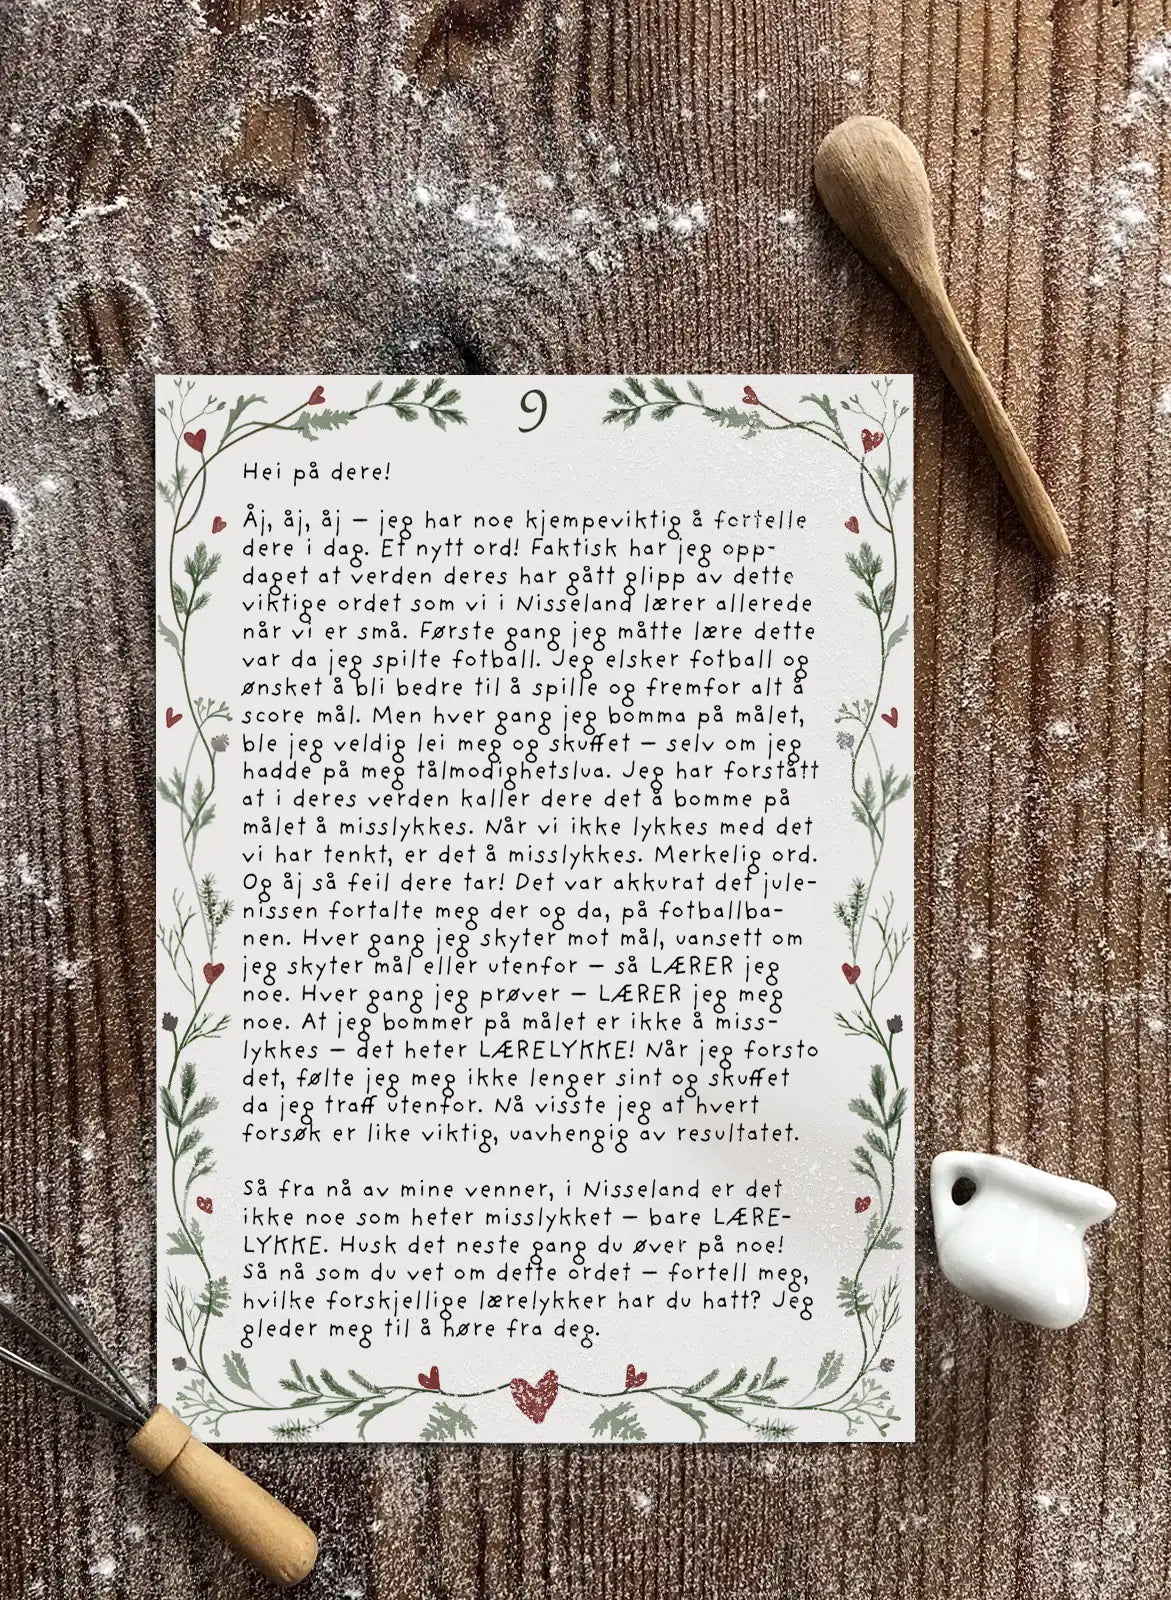 9
Hei på dere!
Åj, åj, åj – jeg har noe kjempeviktig å fortelle
dere i dag. Et nytt ord! Faktisk har jeg opp-
daget at verden deres har gått glipp av dette
viktige ordet som vi i Nisseland lærer allerede
når vi er små. Første gang jeg måtte lære dette
var da jeg spilte fotball. Jeg elsker fotball og
ønsket å bli bedre til å spille og fremfor alt å
score mål. Men hver gang jeg bomma på målet,
ble jeg veldig lei meg og skuffet – selv om jeg
hadde på meg tålmodighetslua. Jeg har forstått
at i deres verden kaller dere det å bomme på
målet å misslykkes. Når vi ikke lykkes med det
vi har tenkt, er det å misslykkes. Merkelig ord.
Og åj så feil dere tar! Det var akkurat det jule-
nissen fortalte meg der og da, på fotballba-
nen. Hver gang jeg skyter mot mål, uansett om
jeg skyter mål eller utenfor – så LÆRER jeg
noe. Hver gang jeg prøver – LÆRER jeg meg
noe. At jeg bommer på målet er ikke å miss-
lykkes – det heter LÆRELYKKE! Når jeg forsto
det, følte jeg meg ikke lenger sint og skuffet
da jeg traff utenfor. Nå visste jeg at hvert
forsøk er like viktig, uavhengig av resultatet.
Så fra nå av mine venner, i Nisseland er det
ikke noe som heter misslykket – bare LÆRE-
LYKKE. Husk det neste gang du øver på noe!
Så nå som du vet om dette ordet – fortell meg,
hvilke forskjellige lærelykker har du hatt? Jeg
gleder meg til å høre fra deg.